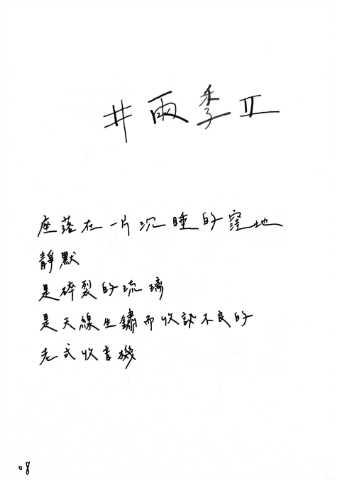 #雨季 II
座落在一片沉睡的窪地
靜默
是碎裂的琉璃
是天線生鏽而收訊不良的
老式收音機
08